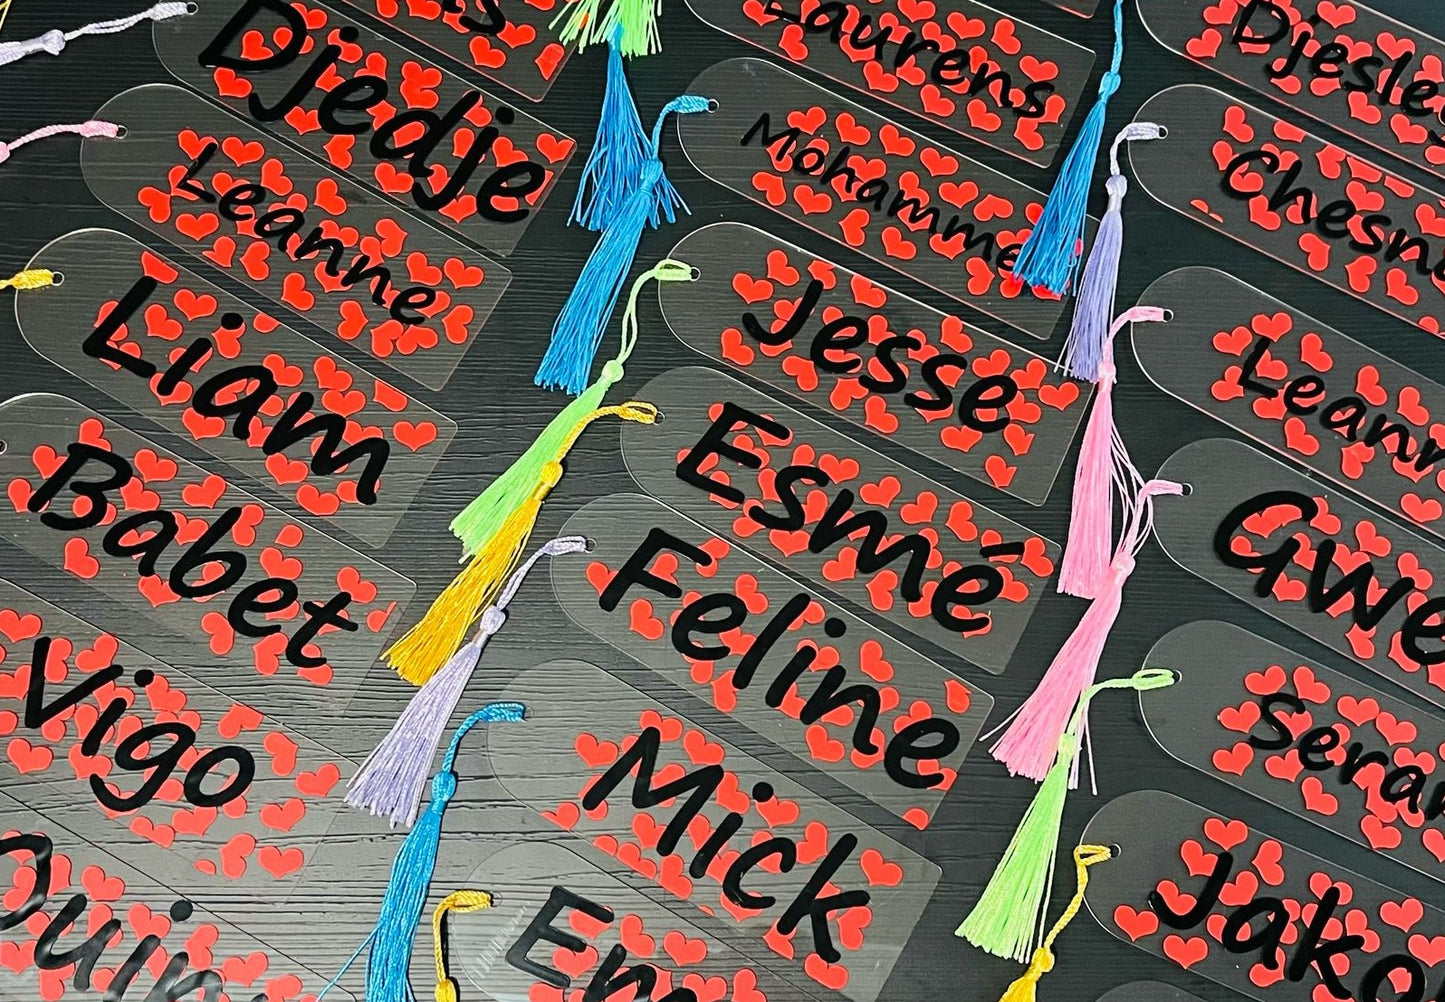 Djedje
Leanne
Liam
Babet
Vigo
Laurens
Mohamme
Jesse
Esmé
Feline
Mick
Em
Djesley
Chesn
Leann
Gwe
Sera
Jako